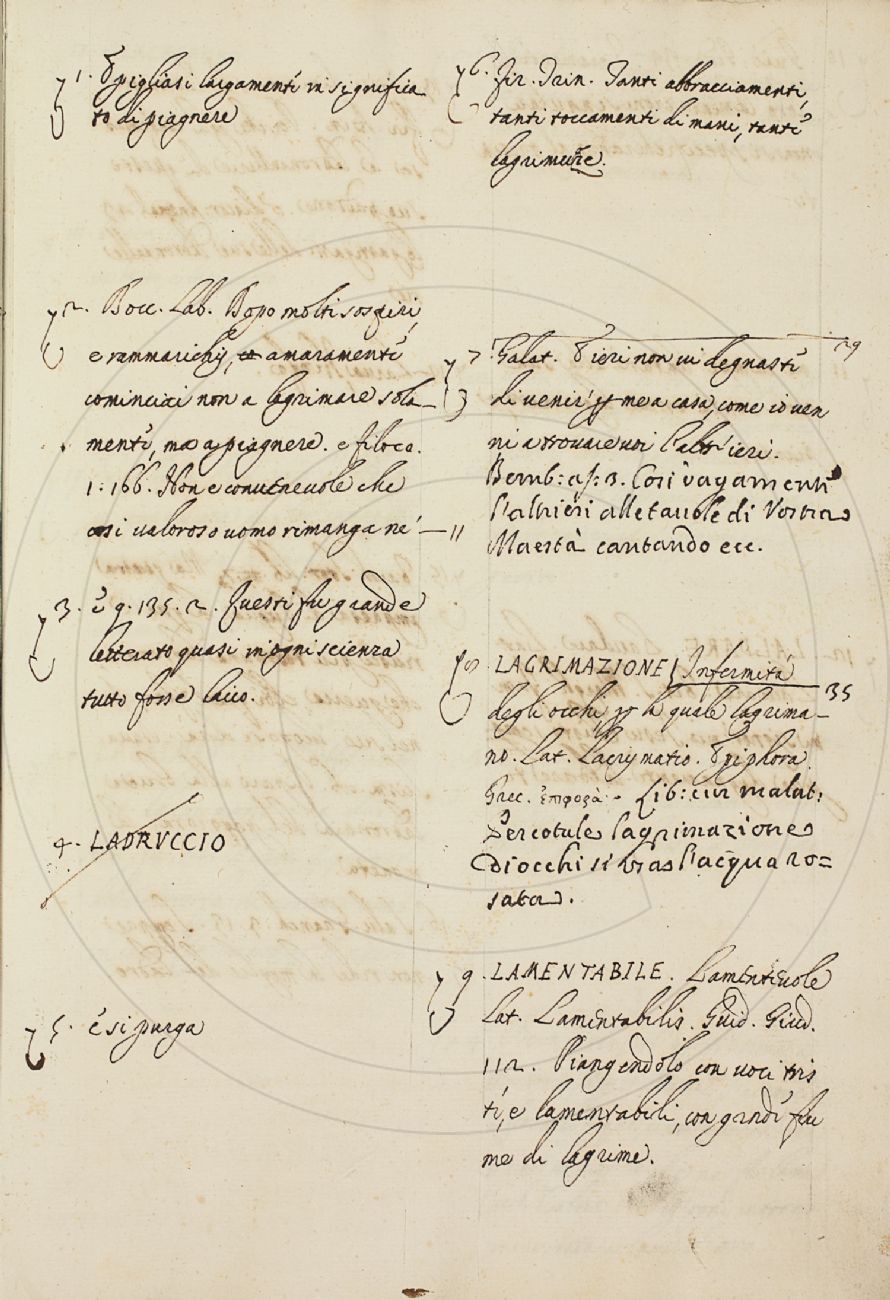 1. E pigliasi largamente in significa
to di piagnere
2. Bocc. Lab. Dopo molti sospiri,
e rammarichij, amaramente
cominciai non a lagrimare sola-
mente, ma a piagnere. e filoco.
1: 166. Non è convenevole che
così valoroso uomo rimanga ne'
3. e q. 135. 2. Questi fu grande
letterato quasi in ogni scienza
tutto fosse laico.
4. LADRUCCIO
5. e si purga
6. Fir. Trin. Tanti abbracciamenti,
tanti toccamenti di mani, tante
7 Galat. E ieri non vi degnaste 29
di venir per me a casa, come io ven
ni a trovare voi l'altr'ieri.
Bemb: as: 3. Così vagamente
l'altrieri alle tavole di Vostra
11 Maestà cantando ecc.
8 LAGRIMAZIONE Infermità
35
degli occhi, per la quale lagrima-
no. Lat. Lacrymatio. Epiphora.
Grec. ἐπιφορὰ. Lib: cur malat:
Per cotale lagrimazione
D'occhi si usa l'acqua ro=
sata.
9. LAMENTABILE. Lamentevole
Lat. Lamentabilis. Guid. Giud.
112. Piangendolo con voci tris
ti, e lamentabili, con grande fiu
me di lagrime.